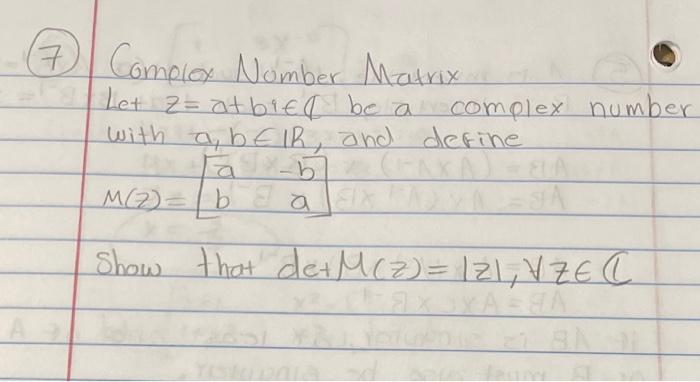 7 Complex Number Matrix
Let z = a+bi ∈ ℂ be a complex number
with a, b ∈ ℝ, and define
M(z) = [a -b
b a]
Show that det M(z) = |z|, ∀ z ∈ ℂ